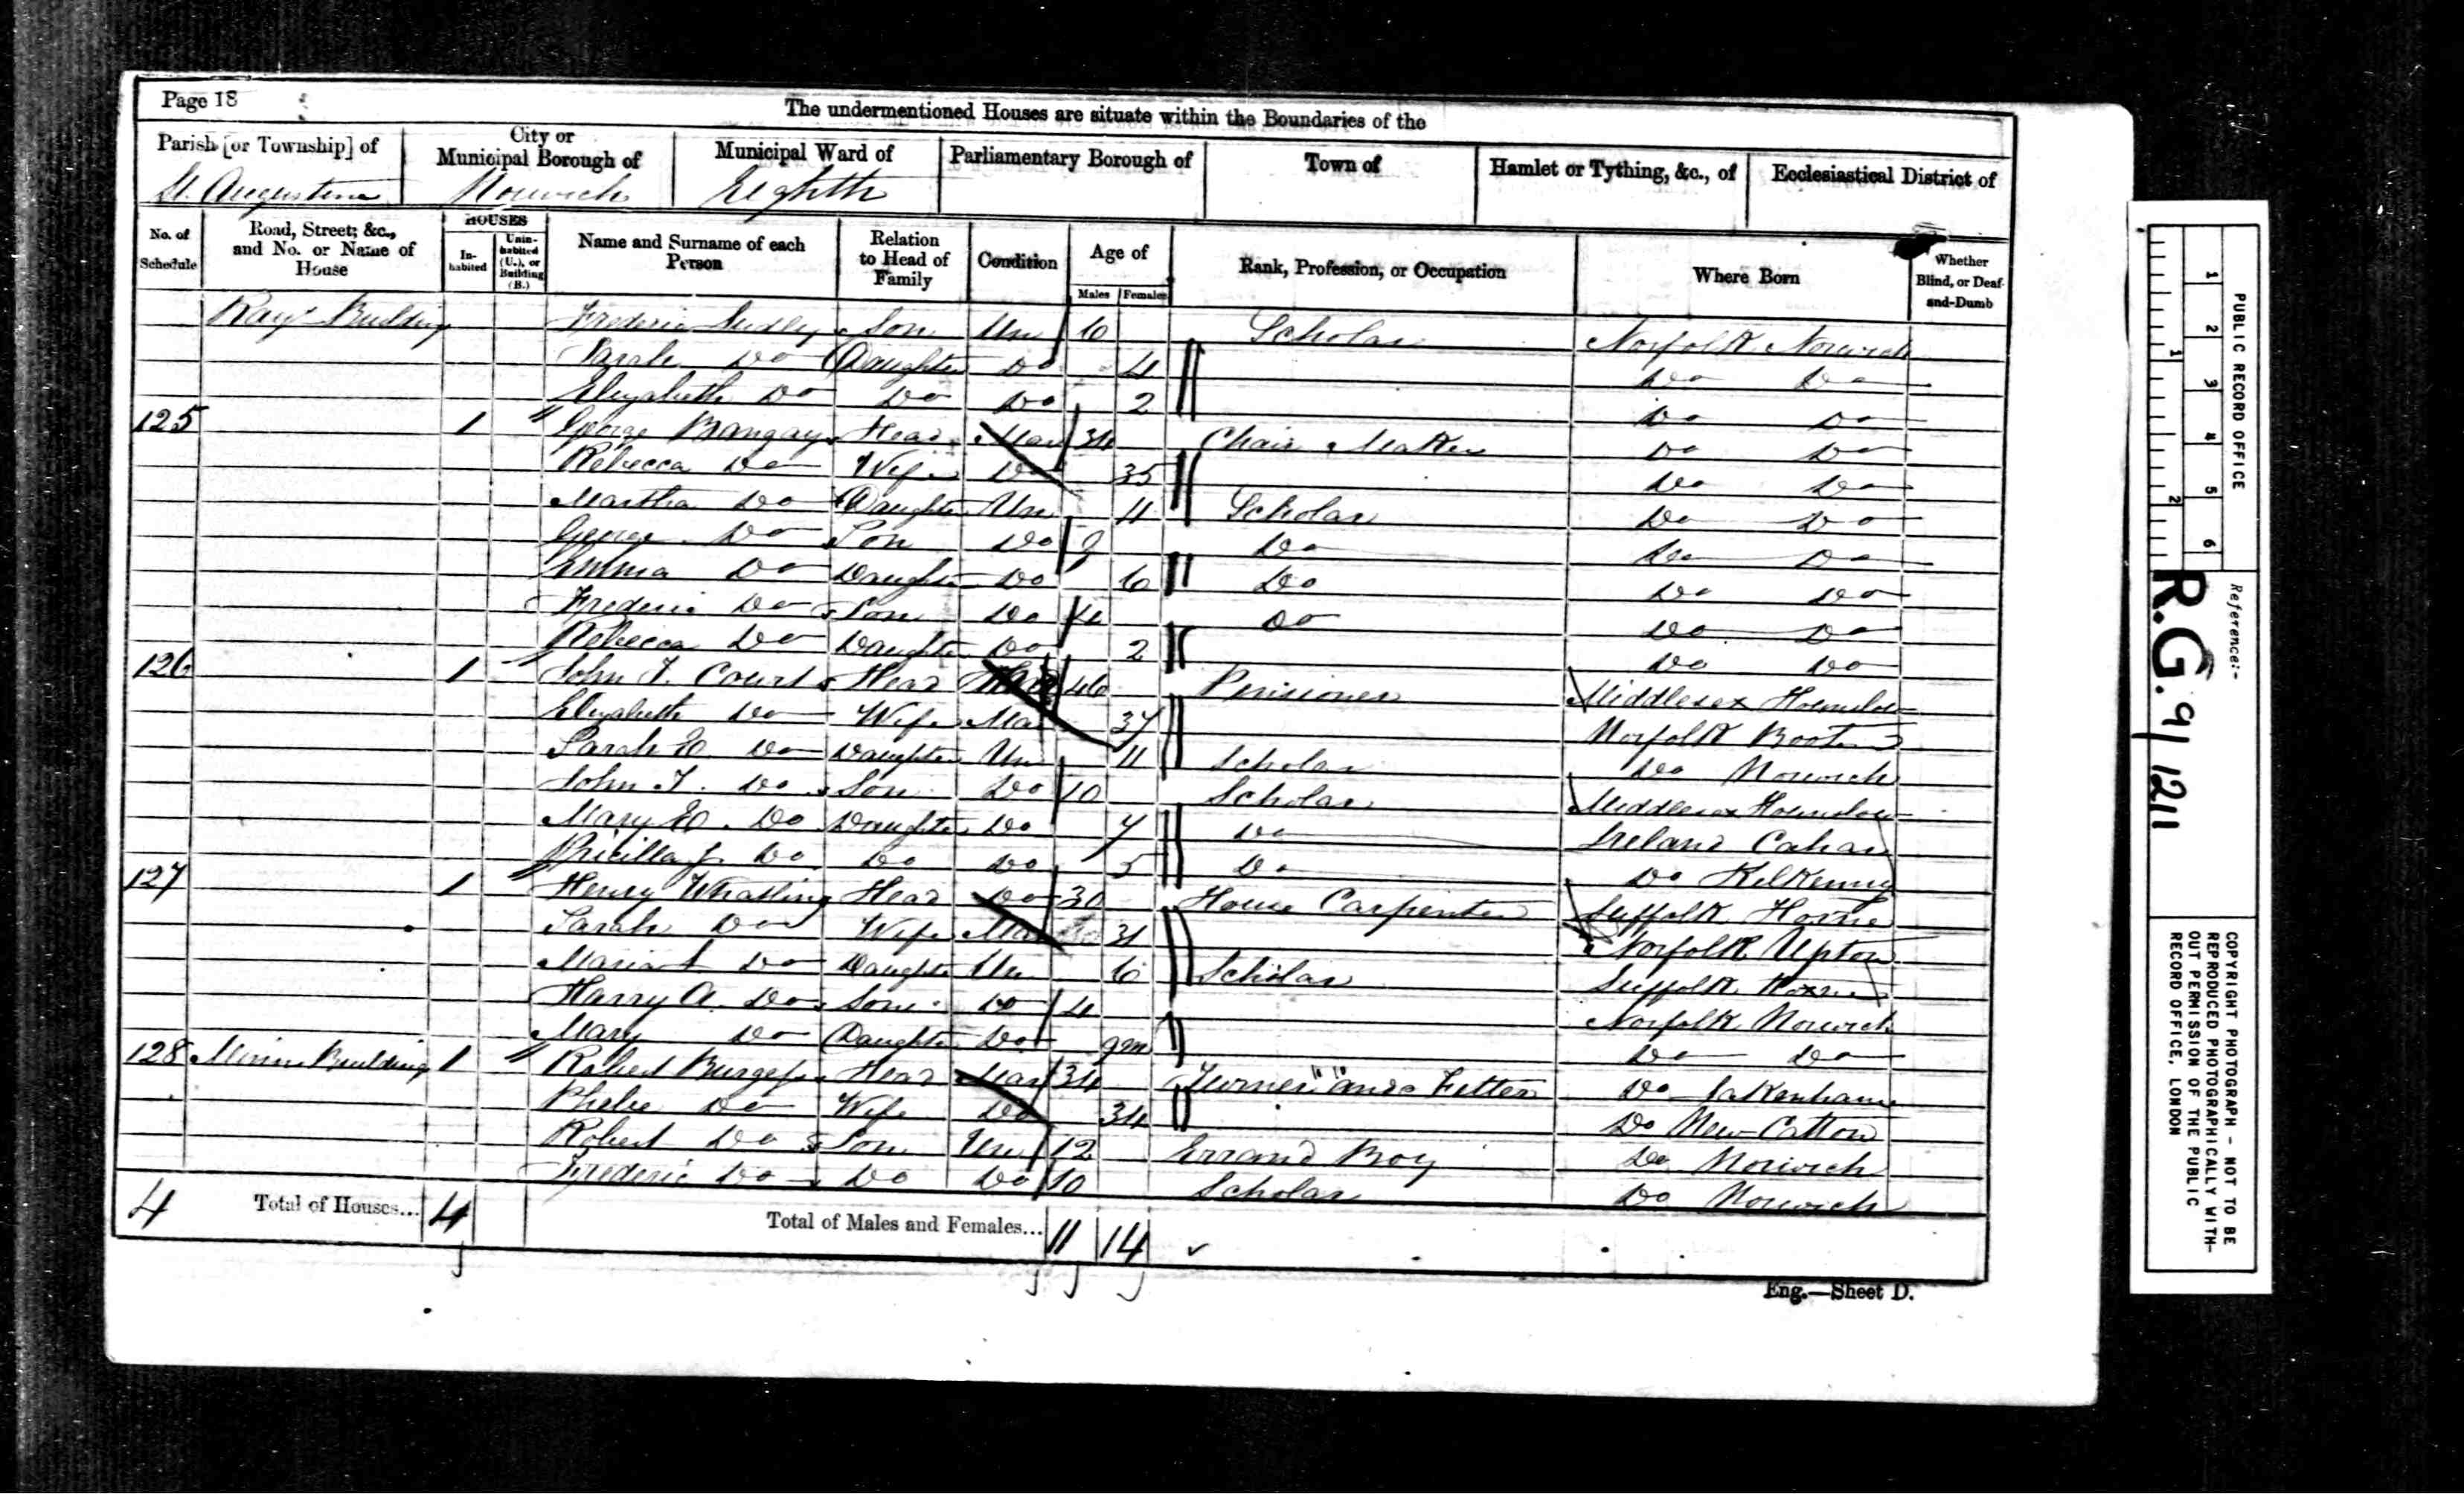 Page 18
The undermentioned Houses are situate within the Boundaries of the
Parish [or Township] of City or Municipal Borough of Municipal Ward of Parliamentary Borough of Town of Hamlet or Tything, &c., of Ecclesiastical District of
St. Augustine Norwich Eighth
No. of Schedule Road, Street, &c., and No. or Name of House HOUSES In-habited Unin-habited (U.), or Building (B.) Name and Surname of each Person Relation to Head of Family Condition Age of Males Females Rank, Profession, or Occupation Where Born Whether Blind, or Deaf-and-Dumb
Rays Building Frederic Son Un 6 Scholar Norfolk Norwich
Sarah Do Daughter Do 4 Do Do
Elizabeth Do Do Do 2 Do Do
125 1 George Bangay Head Mar 34 Chair Maker Do Do
Rebecca Do Wife Do 35 Do Do
Martha Do Daughter Un 11 Scholar Do Do
George Do Son Do 9 Do Do Do
Emma Do Daughter Do 6 Do Do Do
Frederic Do Son Do 4 Do Do Do
Rebecca Do Daughter Do 2 Do Do
126 1 John T. Court Head 46 Pensioner Middlesex Hounslow
Elizabeth Do Wife Mar 37 Norfolk Booton
Sarah E. Do Daughter Un 11 Scholar Do Norwich
John T. Do Son Do 10 Scholar Middlesex Hounslow
Mary E. Do Daughter Do 7 Do Ireland Cahar
Pricilla J. Do Do Do 5 Do Do Kilkenny
127 1 Henry Whatling Head Do 30 House Carpenter Suffolk Hoxne
Sarah Do Wife Mar 31 Norfolk Upton
Maria A Do Daughter Un 6 Scholar Suffolk Hoxne
Harry A. Do Son Do 4 Norfolk Norwich
Mary Do Daughter Do 9m Do Do
128 Building 1 Robert Burgess Head Mar 34 Turner "and" Fitter Do Lakenham
Phebe Do Wife Do 34 Do New Catton
Robert Do Son Un 12 Errand Boy Do Norwich
Frederic Do Do Do 10 Scholar Do Norwich
4 Total of Houses... 4 Total of Males and Females... 11 14
Eng.—Sheet D.
PUBLIC RECORD OFFICE
1 2 3 4 5 6
1 2
Reference:-
R.G. 9/1211
COPYRIGHT PHOTOGRAPH - NOT TO BE
REPRODUCED PHOTOGRAPHICALLY WITH-
OUT PERMISSION OF THE PUBLIC
RECORD OFFICE, LONDON